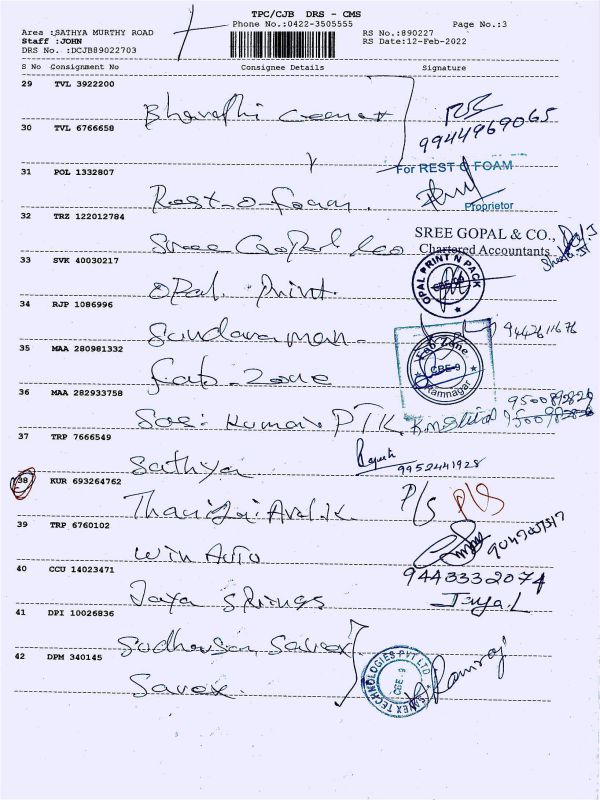 TPC/CJB DRS - CMS
Area :SATHYA MURTHY ROAD Phone No.:0422-3505555 Page No.:3
Staff :JOHN RS No.:890227
DRS No. :DCJB89022703 RS Date:12-Feb-2022
S No Consignment No Consignee Details Signature
29 TVL 3922200
Bharathi
9944969065
30 TVL 6766658
31 POL 1332807 For REST O FOAM
Rest-o-foam. Proprietor
32 TRZ 122012784 SREE GOPAL & CO.,
Sree Gopal &co Chartered Accountants
33 SVK 40030217 OPAL PRINT N PACK
opal. Print. CBE-09
34 RJP 1086996
Sundararaman. 9442611676
35 MAA 280981332 Fab Zone
Fab-Zone CBE-9 Ramnagar
36 MAA 282933758
Sasi Kumar PTK.
37 TRP 7666549
Sathya 9952441928
38 KUR 693264762
P/S P/S
39 TRP 6760102
Win Auto
40 CCU 14023471 9443332074
Jaya Springs Jaya.L
41 DPI 10026836
Sudharsan Savex
42 DPM 340145 SAVEX TECHNOLOGIES PVT LTD
Savex. CBE 9 Ramraj